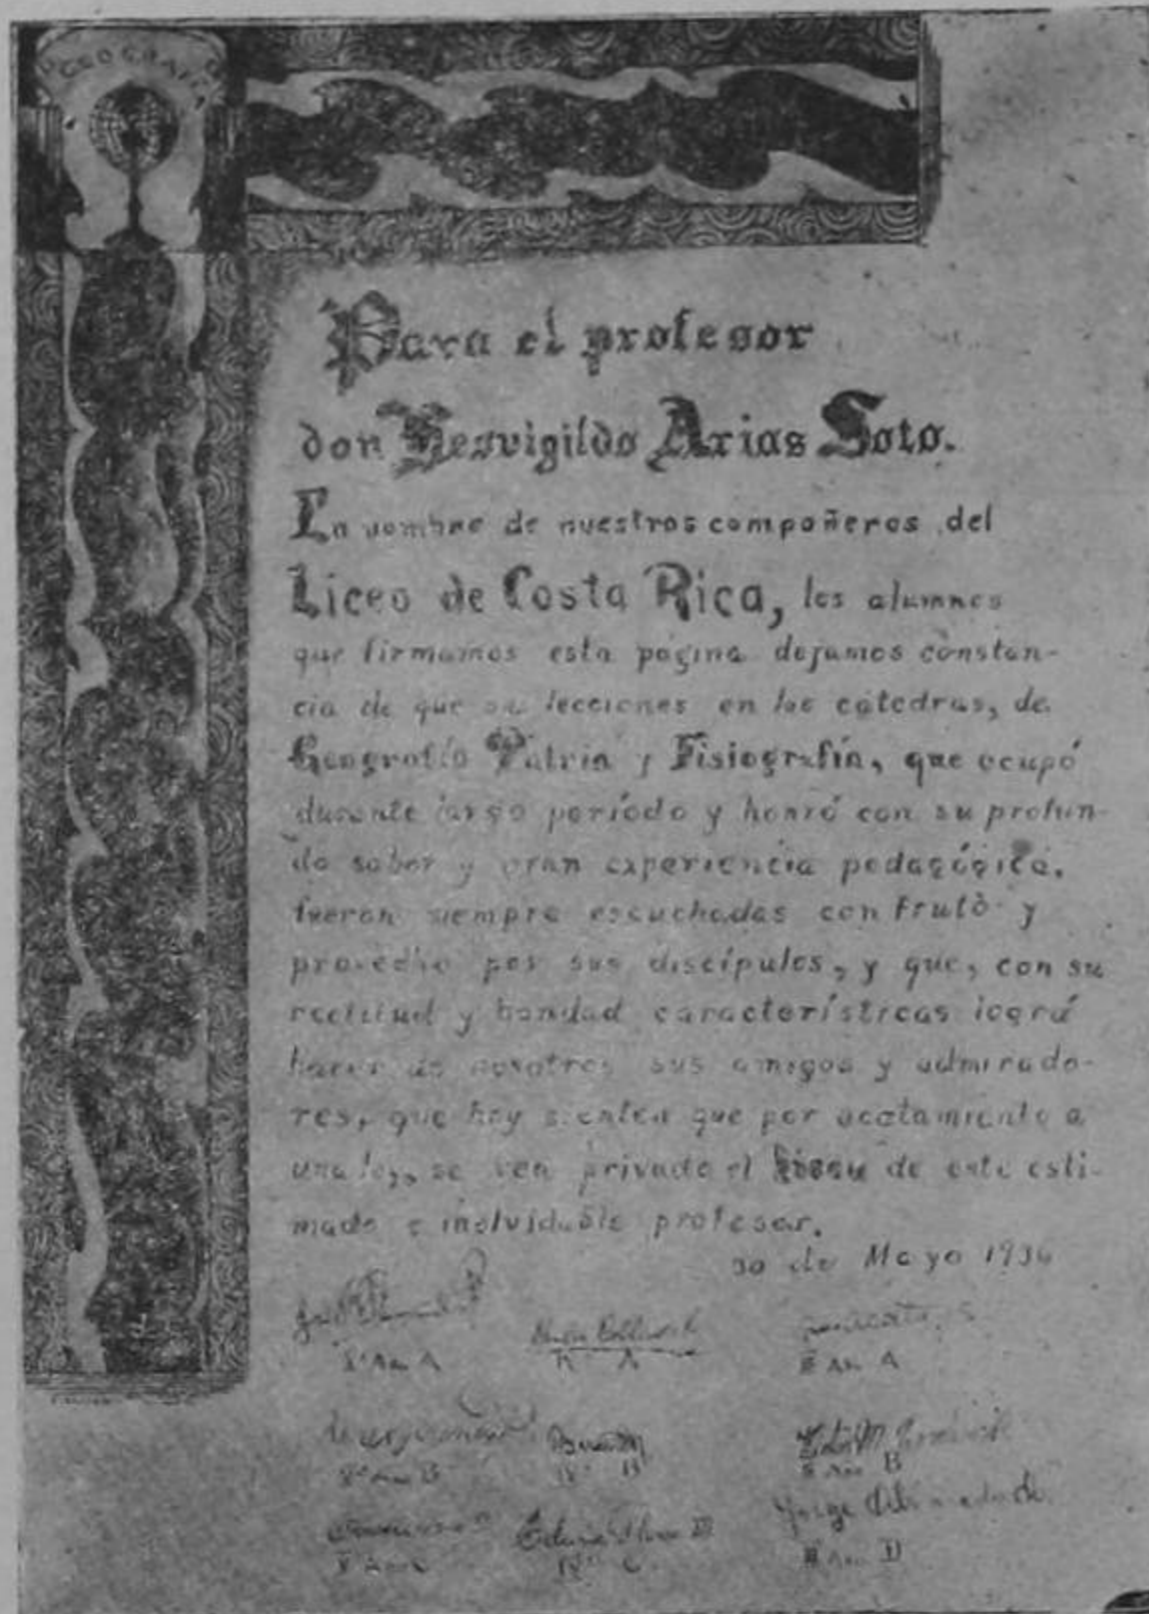 GEOGRAFIA
Para el profesor
don Hesvigildo Arias Soto.
En nombre de nuestros compañeros del
Liceo de Costa Rica, los alumnos
que firmamos esta página dejamos constan-
cia de que su lecciones en las cátedras, de
Geografía Patria y Fisiografía, que ocupó
durante largo período y honró con su profun-
do saber y gran experiencia pedagógica,
fueron siempre escuchadas con fruto y
provecho por sus discípulos, y que, con su
rectitud y bondad características logró
hacer de nosotros sus amigos y admirado-
res, que hoy sienten que por acatamiento a
una ley, se vea privado el Liceo de este esti-
mado e inolvidable profesor.
30 de Mayo 1936
V Año A
IV A
II Año A
V Año B
IV B
II Año B
Jorge
V Año C
IV C
III Año D